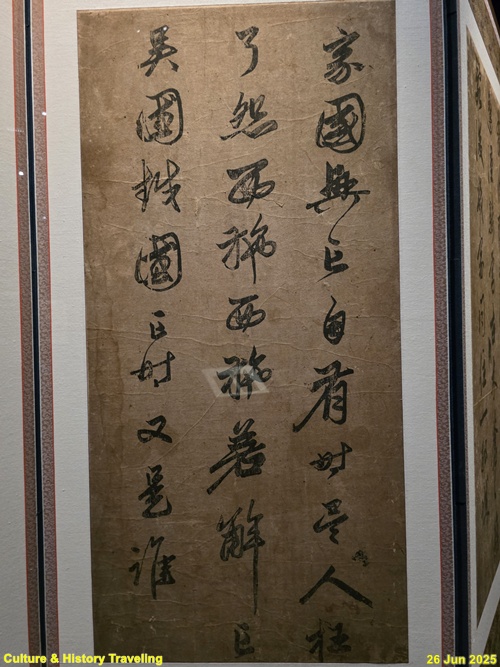 家國興亡自有時吳人枉
了怨西施西施若解亡
吳國越國亡時又是誰
Culture & History Traveling
26 Jun 2025